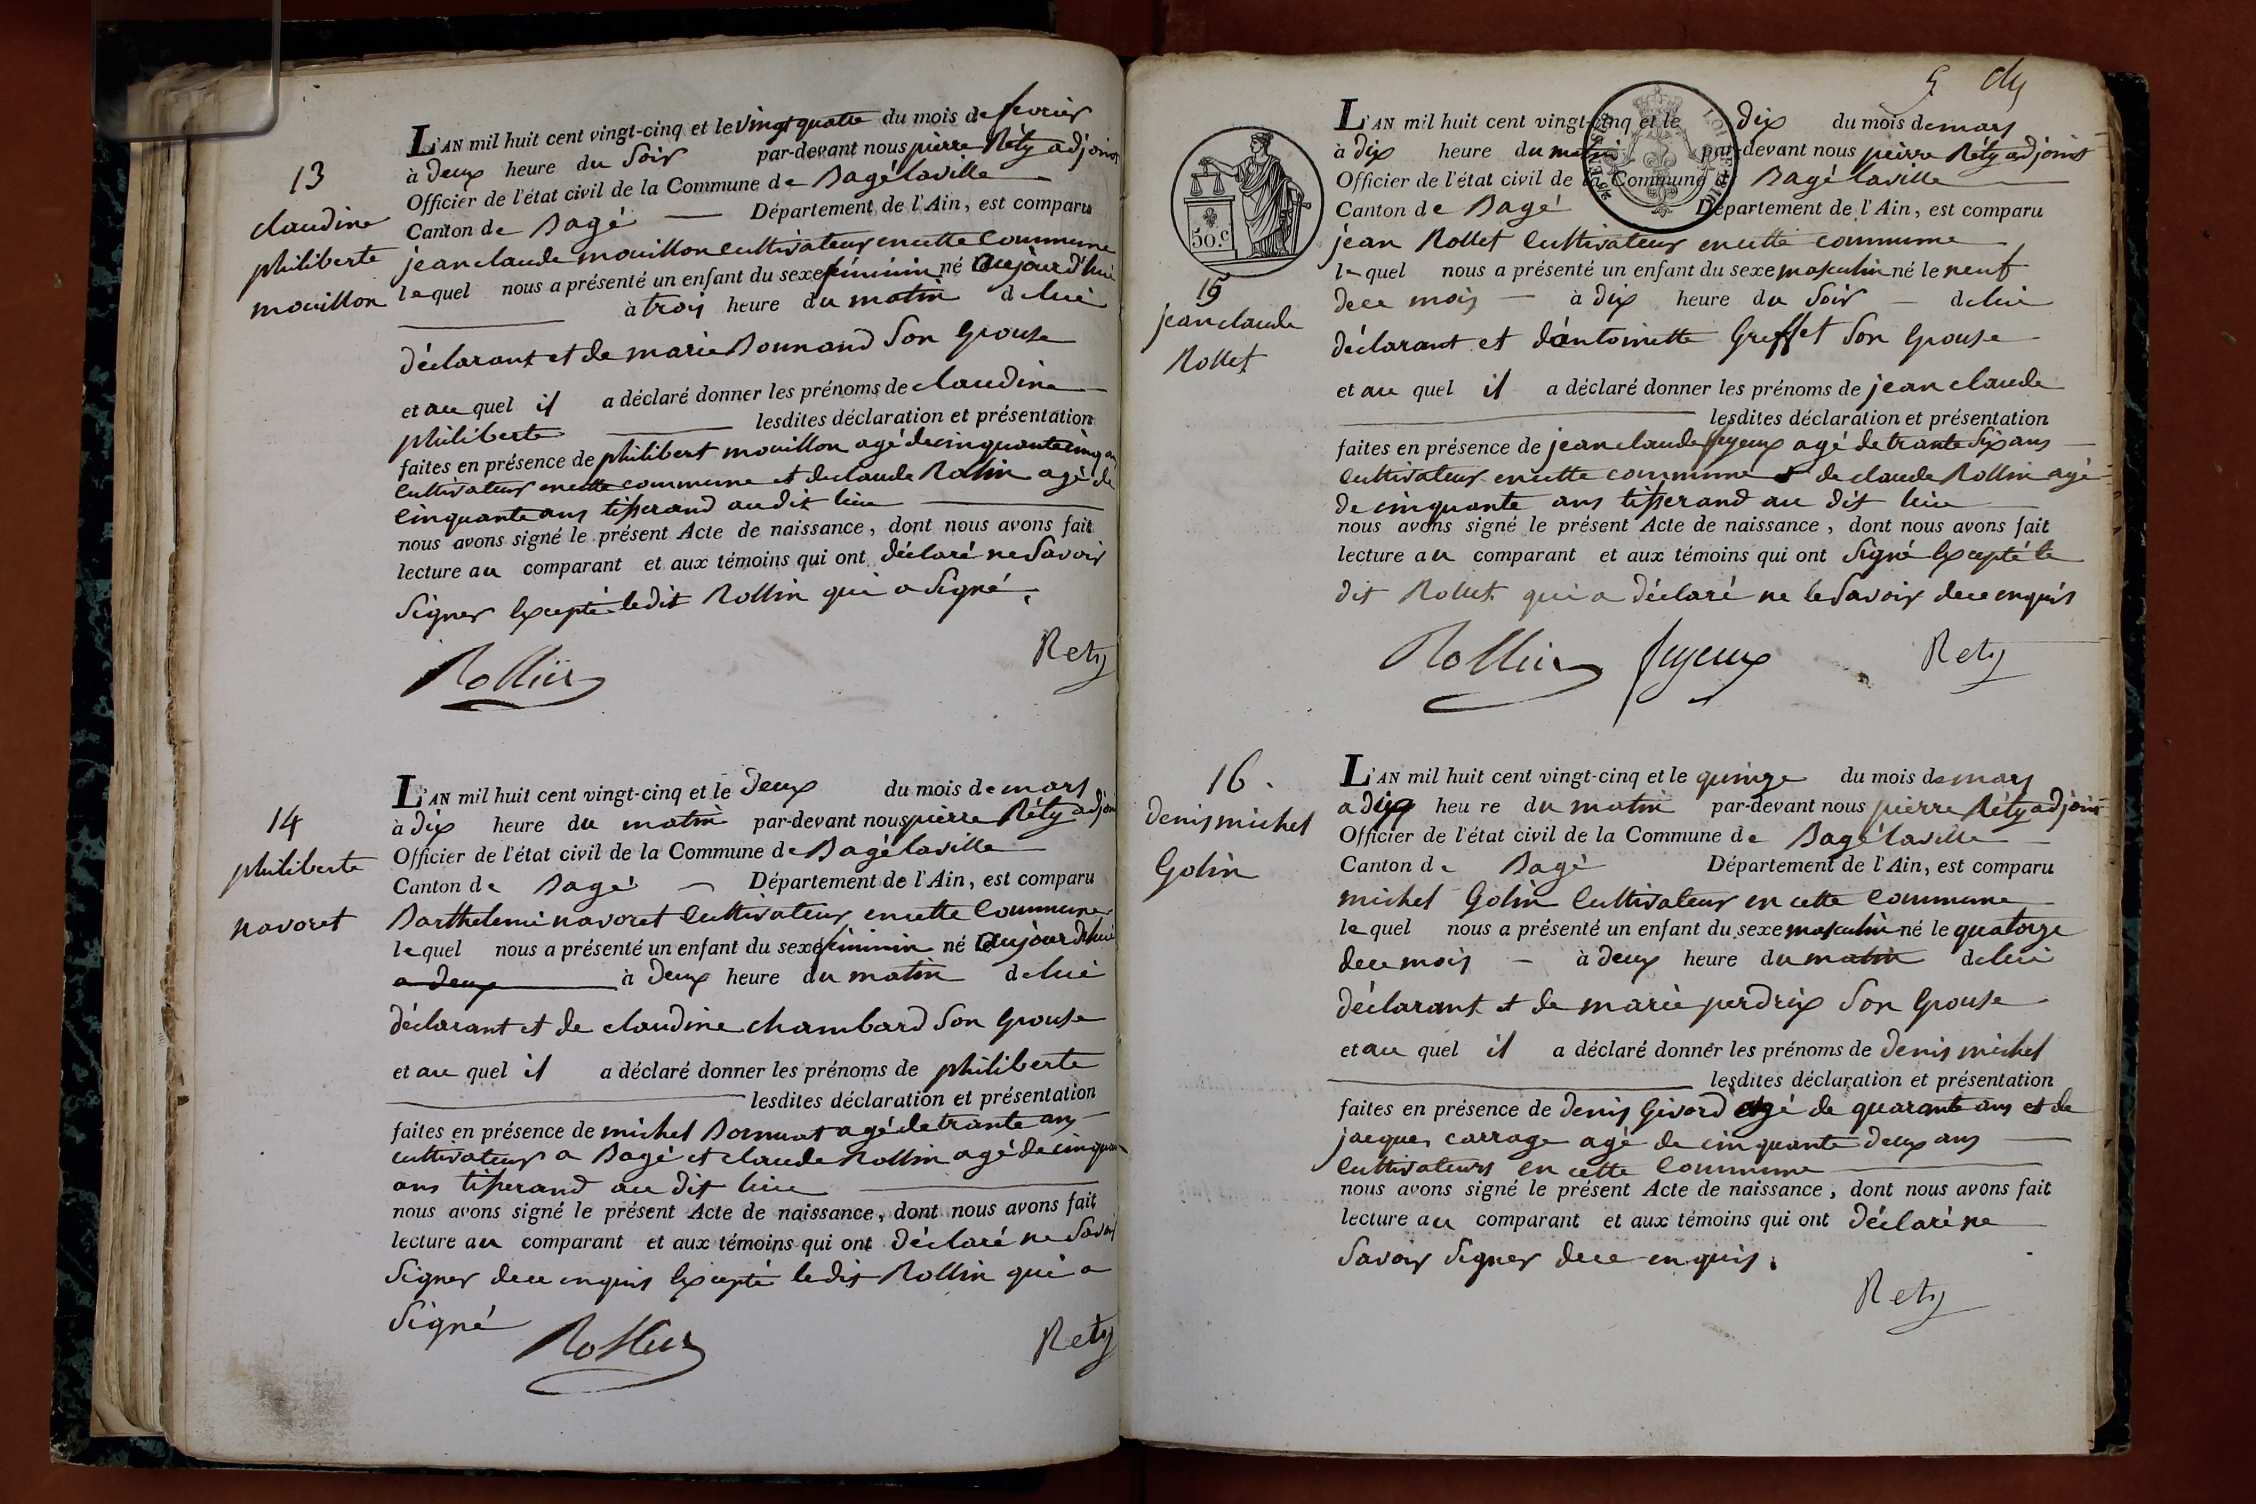 13
claudine
philiberte
mouillon
L'AN mil huit cent vingt-cinq et le vingt quatre du mois de fevrier
à deux heure du soir par-devant nous pierre Réty adjoint
Officier de l'état civil de la Commune de Bagé laville
Canton de Bagé Département de l'Ain, est comparu
jean claude mouillon cultivateur en cette commune
lequel nous a présenté un enfant du sexe féminin né aujourd'hui
à trois heure du matin de lui
déclarant et de marie Bonnand son épouse
et au quel il a déclaré donner les prénoms de claudine
philiberte lesdites déclaration et présentation
faites en présence de philibert mouillon agé de cinquante cinq an
cultivateur en cette commune et de claude Rollin agé de
cinquante ans tisserand au dit lieu
nous avons signé le présent Acte de naissance, dont nous avons fait
lecture au comparant et aux témoins qui ont déclaré ne savoir
signer excepté ledit Rollin qui a signé.
Rollin Rety
14
philiberte
navoret
L'AN mil huit cent vingt-cinq et le deux du mois de mars
à dix heure du matin par-devant nous pierre Réty adjoin
Officier de l'état civil de la Commune de Bagé laville
Canton de Bagé Département de l'Ain, est comparu
Barthelemi navoret cultivateur en cette commune
lequel nous a présenté un enfant du sexe féminin né aujourd'hui
a deux à deux heure du matin de lui
déclarant et de claudine chambard son épouse
et au quel il a déclaré donner les prénoms de philiberte
lesdites déclaration et présentation
faites en présence de michel agé de trante ans
cultivateur a Bagé et claude Rollin agé de cinquan
ans tisserand au dit lieu
nous avons signé le présent Acte de naissance, dont nous avons fait
lecture au comparant et aux témoins qui ont déclaré ne savoir
signer de ce enquis excepté ledit Rollin qui a
signé
Rollin Rety
5
50.c
15
jean claude
Rollet
L'AN mil huit cent vingt-cinq et le dix du mois de mars
à dix heure du matin par-devant nous pierre Réty adjoint
Officier de l'état civil de la Commune de Bagé laville
Canton de Bagé Département de l'Ain, est comparu
jean Rollet cultivateur en cette commune
lequel nous a présenté un enfant du sexe masculin né le neuf
de ce mois à dix heure du soir de lui
déclarant et d'antoinette Greffet son épouse
et au quel il a déclaré donner les prénoms de jean claude
lesdites déclaration et présentation
faites en présence de jean claude feyeux agé de trante six ans
cultivateur en cette commune et de claude Rollin agé
de cinquante ans tisserand au dit lieu
nous avons signé le présent Acte de naissance, dont nous avons fait
lecture au comparant et aux témoins qui ont signé excepté le
dit Rollet qui a déclaré ne le savoir de ce enquis
Rollin feyeux Rety
16.
denis michel
Golin
L'AN mil huit cent vingt-cinq et le quinze du mois de mars
a dix heure du matin par-devant nous pierre Réty adjoint
Officier de l'état civil de la Commune de Bagé laville
Canton de Bagé Département de l'Ain, est comparu
michel Golin cultivateur en cette commune
lequel nous a présenté un enfant du sexe masculin né le quatorze
de ce mois à deux heure du matin de lui
déclarant et de marie perdrix son épouse
et au quel il a déclaré donner les prénoms de denis michel
lesdites déclaration et présentation
faites en présence de denis Givord agé de quarante ans et de
jacques carrage agé de cinquante deux ans
cultivateurs en cette commune
nous avons signé le présent Acte de naissance, dont nous avons fait
lecture au comparant et aux témoins qui ont déclaré ne
savoir signer de ce enquis.
Rety